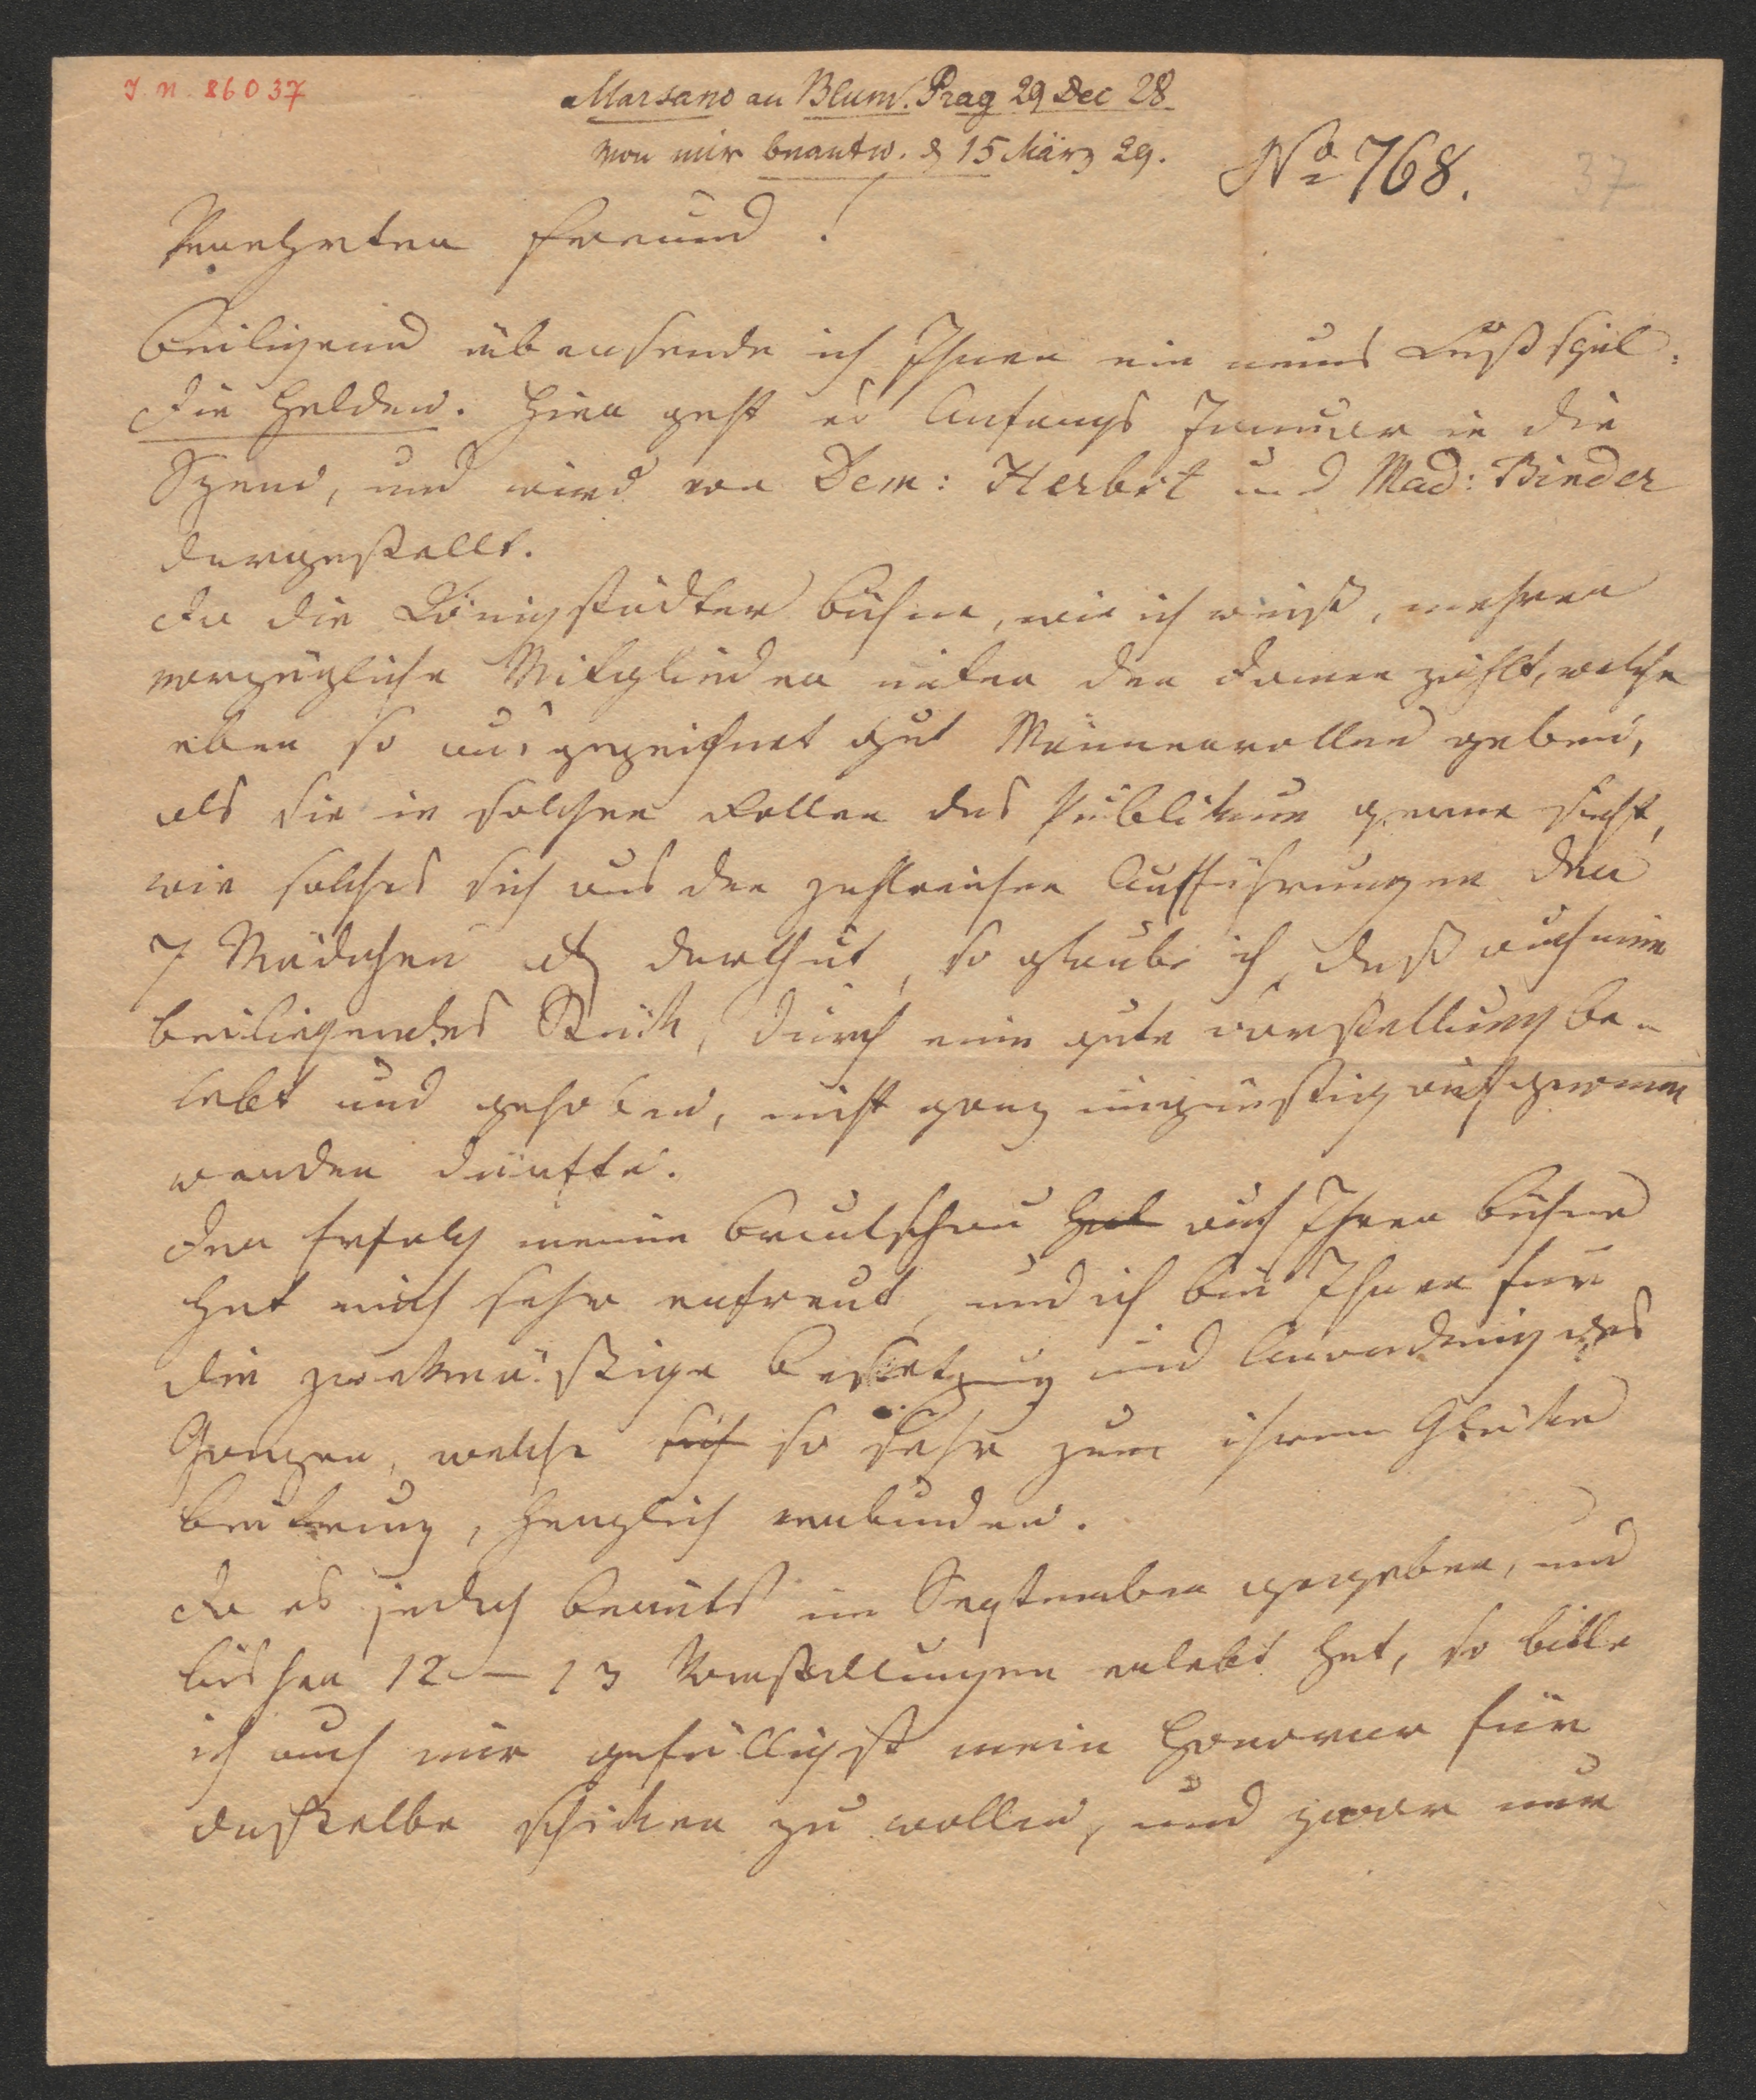 I. N. 86037
Marsano an Blum. Prag 29 Dec 28
von mir beantw. d 15 März 29.
No 768.
37
Verehrter Freund!
Beiligend übersende ich Ihnen ein neues Lustspiel:
die Helden. Hier geht es Anfangs Januar in die
Szene, und wird von Dem: Herbst und Mad: Binder
dargestellt.
Da die Königstädter Bühne, wie ich weiß, mehrere
vorzügliche Mitglieder unter den Damen zählt, welche
eben so ausgezeichnet gut Männerrollen geben,
als sie in solchen Rollen das Publikum gerne sieht,
wie solches sich aus den zahlreichen Aufführungen der
7 Mädchen etc darthut, so glaube ich, daß auch mein
beiliegendes Stück, durch eine gute Darstellung be-
lebt und gehoben, nicht ganz ungünstig aufgenomen
werden dürfte.
Der Erfolg meiner Brautschau hat auf Ihrer Bühne
hat mich sehr erfreut, und ich bin Ihnen für
die zwekmäßige Besetzung und Anordnung des
Ganzen, welche sich so sehr zum ihrem Glücke
beitrug, herzlich verbunden.
Da es jedoch bereits im September gegeben, und
bisher 12 – 13 Vorstellungen erlebt hat, so bitte
ich auch mir gefälligst mein Honorar für
dasselbe schiken zu wollen, und zwar nur